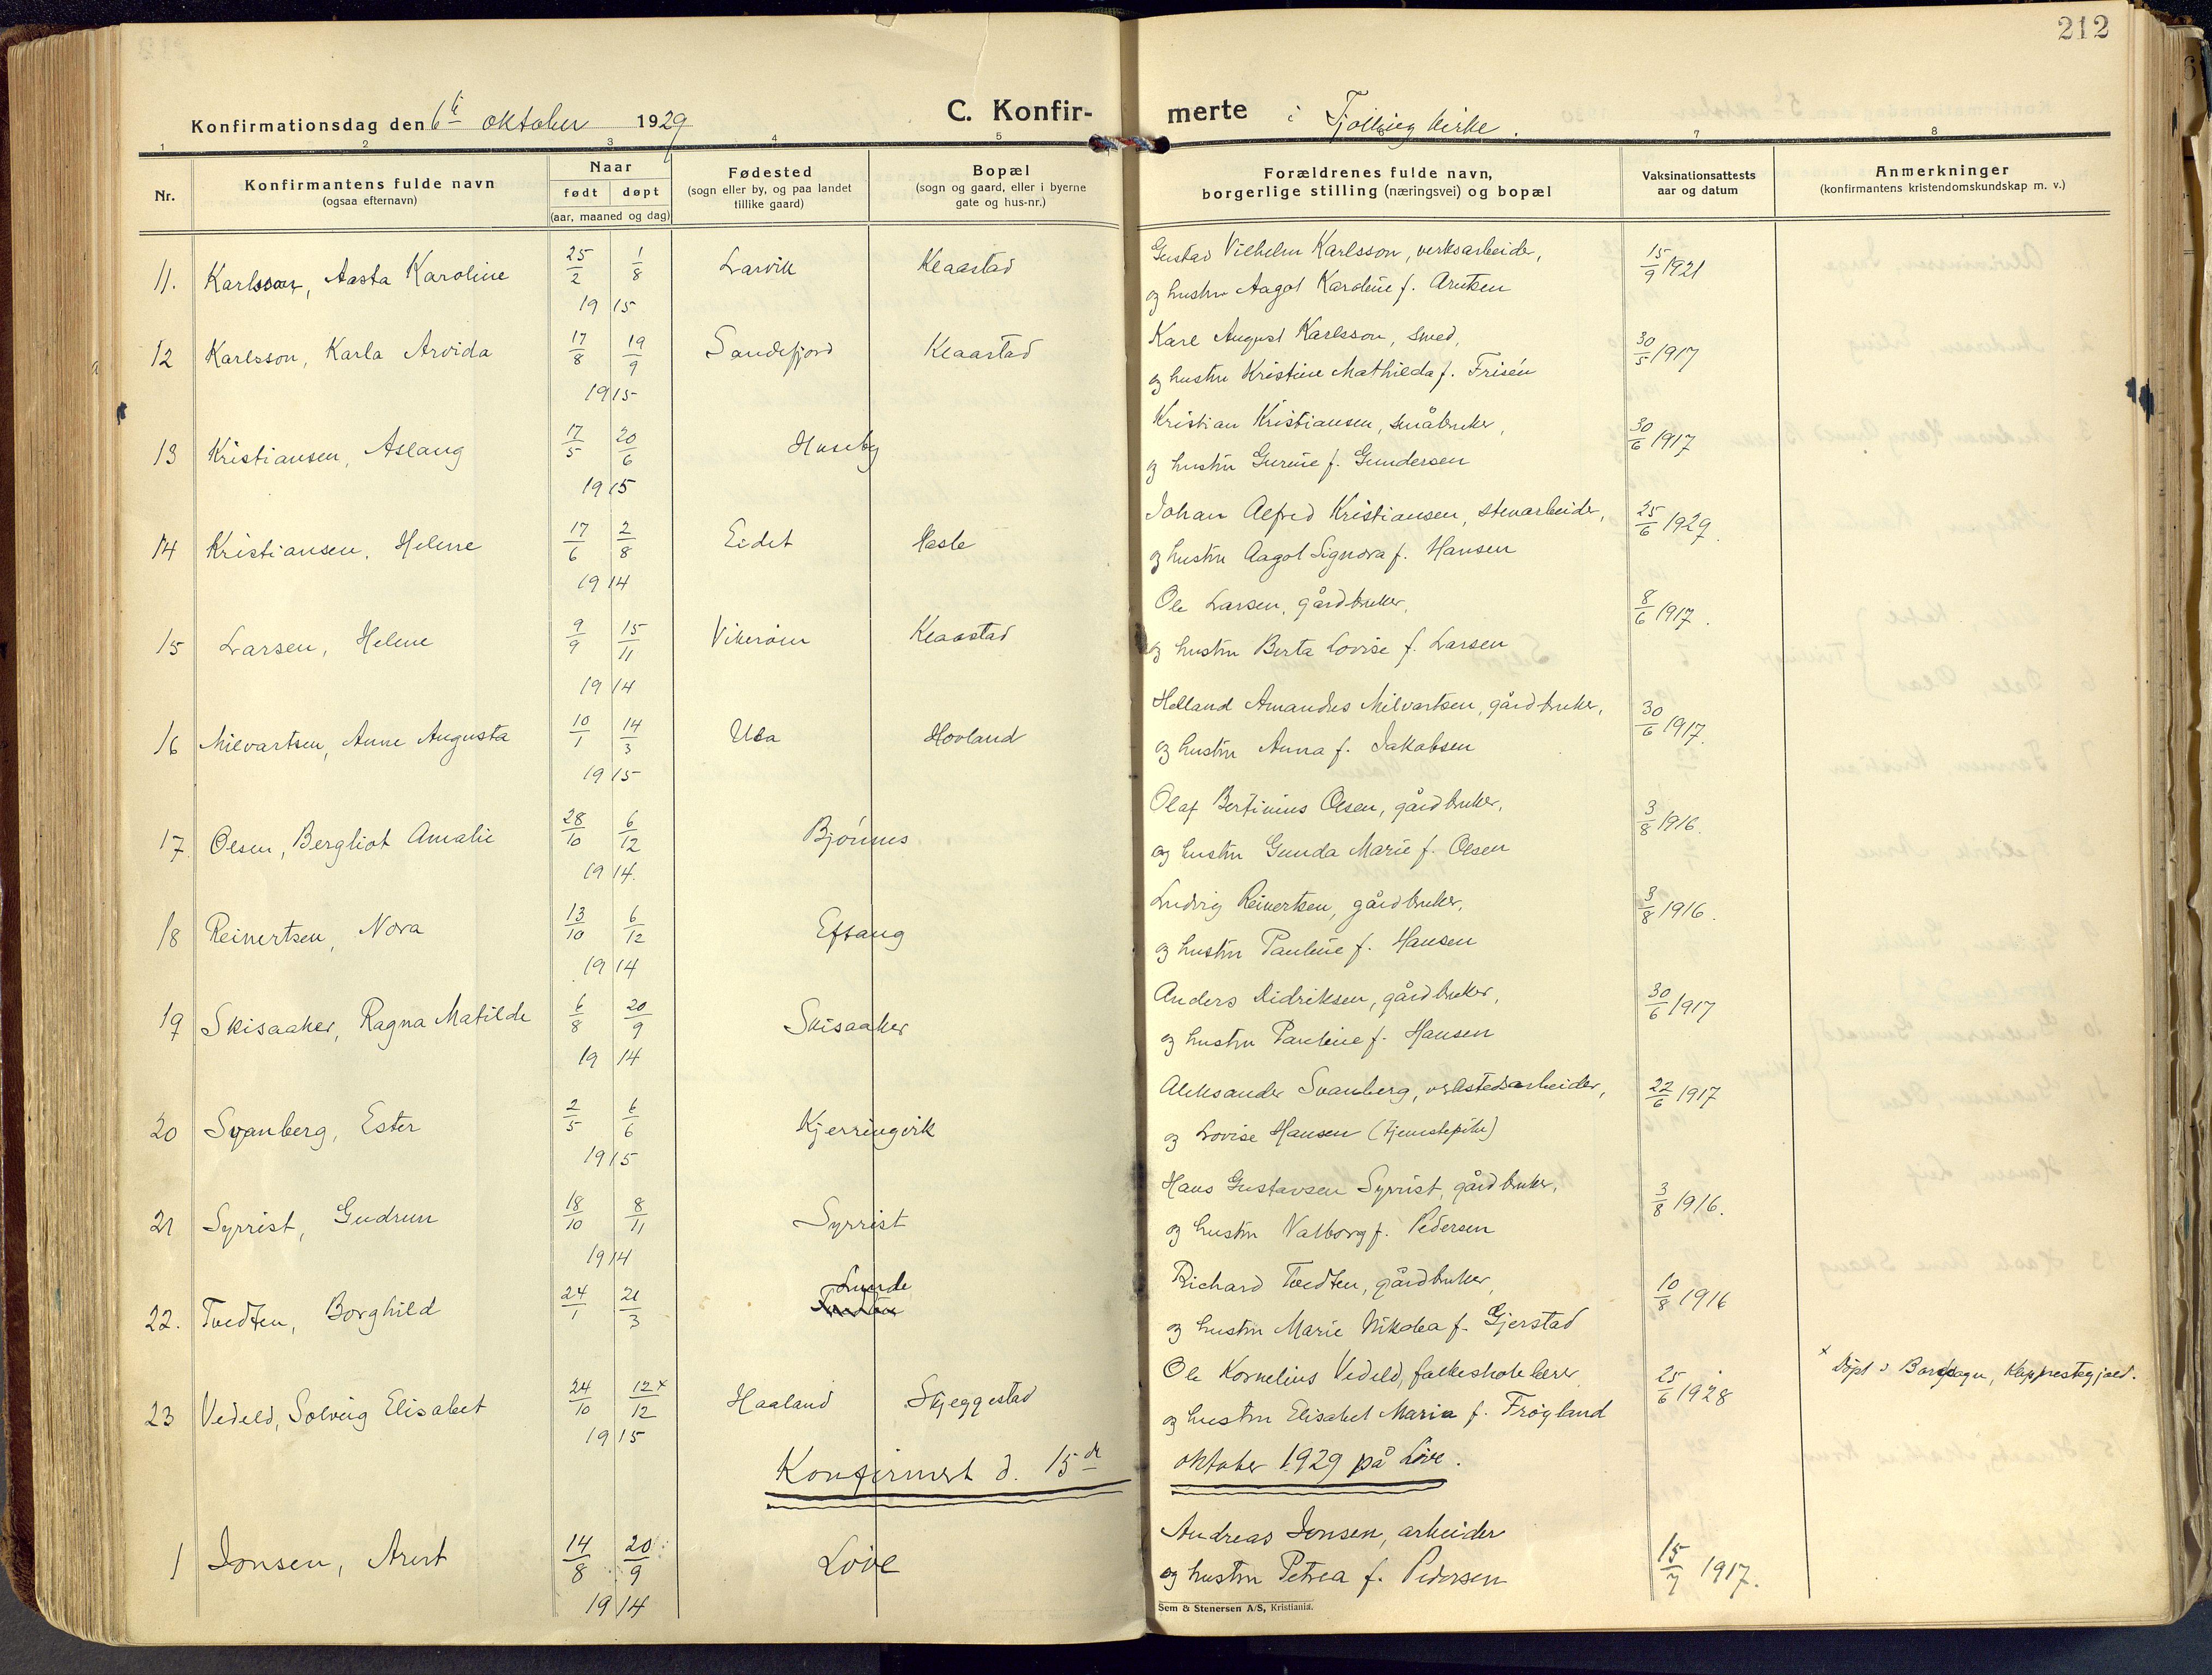 212
Konfirmationsdag den 6te oktober 1929
C. Konfir-
merte i Tjølling kirke.
1 2 3 4 5 7 8
Nr.
Konfirmantens fulde navn
(ogsaa efternavn)
Naar
født døpt
(aar, maaned og dag)
Fødested
(sogn eller by, og paa landet
tillike gaard)
Bopæl
(sogn og gaard, eller i byerne
gate og hus-nr.)
Forældrenes fulde navn,
borgerlige stilling (næringsvei) og bopæl
Vaksinationsattests
aar og datum
Anmerkninger
(konfirmantens kristendomskundskap m. v.)
11. Karlsson, Aasta Karoline 25/2 1/8 1915 Larvik Klaastad
Gustav Vilhelm Karlsson, verksarbeider,
og hustru Aagot Karoline f. Arntsen
15/9 1921
12 Karlsson, Karla Arvida 17/8 19/9 1915 Sandefjord Klaastad
Karl August Karlsson, smed,
og hustru Kristine Mathilda f. Frisén
30/5 1917
13 Kristiansen, Aslaug 17/5 20/6 1915 Huseby
Kristian Kristiansen, småbruker,
og hustru Gurine f. Gundersen
30/6 1917
14 Kristiansen, Helene 17/6 2/8 1914 Eidet Hasle
Johan Alfred Kristiansen, stenarbeider,
og hustru Aagot Signora f. Hansen
25/6 1929.
15 Larsen, Helene 9/9 15/11 1914 Vikerøin Klaastad
Ole Larsen, gårdbruker,
og hustru Berta Lovise f. Larsen
8/6 1917.
16 Milvartsen, Anne Augusta 10/1 14/3 1915 Ula Hovland
Helland Amandus Milvartsen, gårdbruker,
og hustru Anna f. Jakobsen
30/6 1917.
17 Olsen, Bergliot Amalie 28/10 6/12 1914. Bjønnes
Olaf Bertinius Olsen, gårdbruker,
og hustru Gunda Marie f. Olsen
3/8 1916.
18 Reinertsen, Nora 13/10 6/12 1914 Eftang
Ludvig Reinertsen, gårdbruker,
og hustru Pauline f. Hansen
3/8 1916.
19 Skisaaker, Ragna Matilde 6/8 20/9 1914 Skisaaker
Anders Didriksen, gårdbruker,
og hustru Pauline f. Hansen
30/6 1917
20 Svanberg, Ester 2/5 6/6 1915 Kjerringvik
Aleksander Svanberg, verkstedsarbeider,
og Lovise Hansen (tjenestepike)
22/6 1917
21 Syrrist, Gudrun 18/10 8/11 1914 Syrrist
Hans Gustavsen Syrrist, gårdbruker,
og hustru Valborg f. Pedersen
3/8 1916.
22. Tvedten, Borghild 24/1 21/3 Lunde
Richard Tvedten, gårdbruker,
og hustru Marie Nikolea f. Gjerstad
10/8 1916
23 Vedeld, Solveig Elisabet 24/10 12x/12 1915 Haaland Skjeggestad
Ole Kornelius Vedeld, folkeskolelærer
og hustru Elisabet Maria f. Frøyland
25/6 1928
x Døpt i sogn,
Konfirmert d. 15de oktober 1929 på Løve.
1 Jonsen, Arent 14/8 20/9 1914 Løve
Andreas Jonsen, arbeider
og hustru Petrea f. Pedersen
15/7 1917.
Sem & Stenersen A/S, Kristiania.